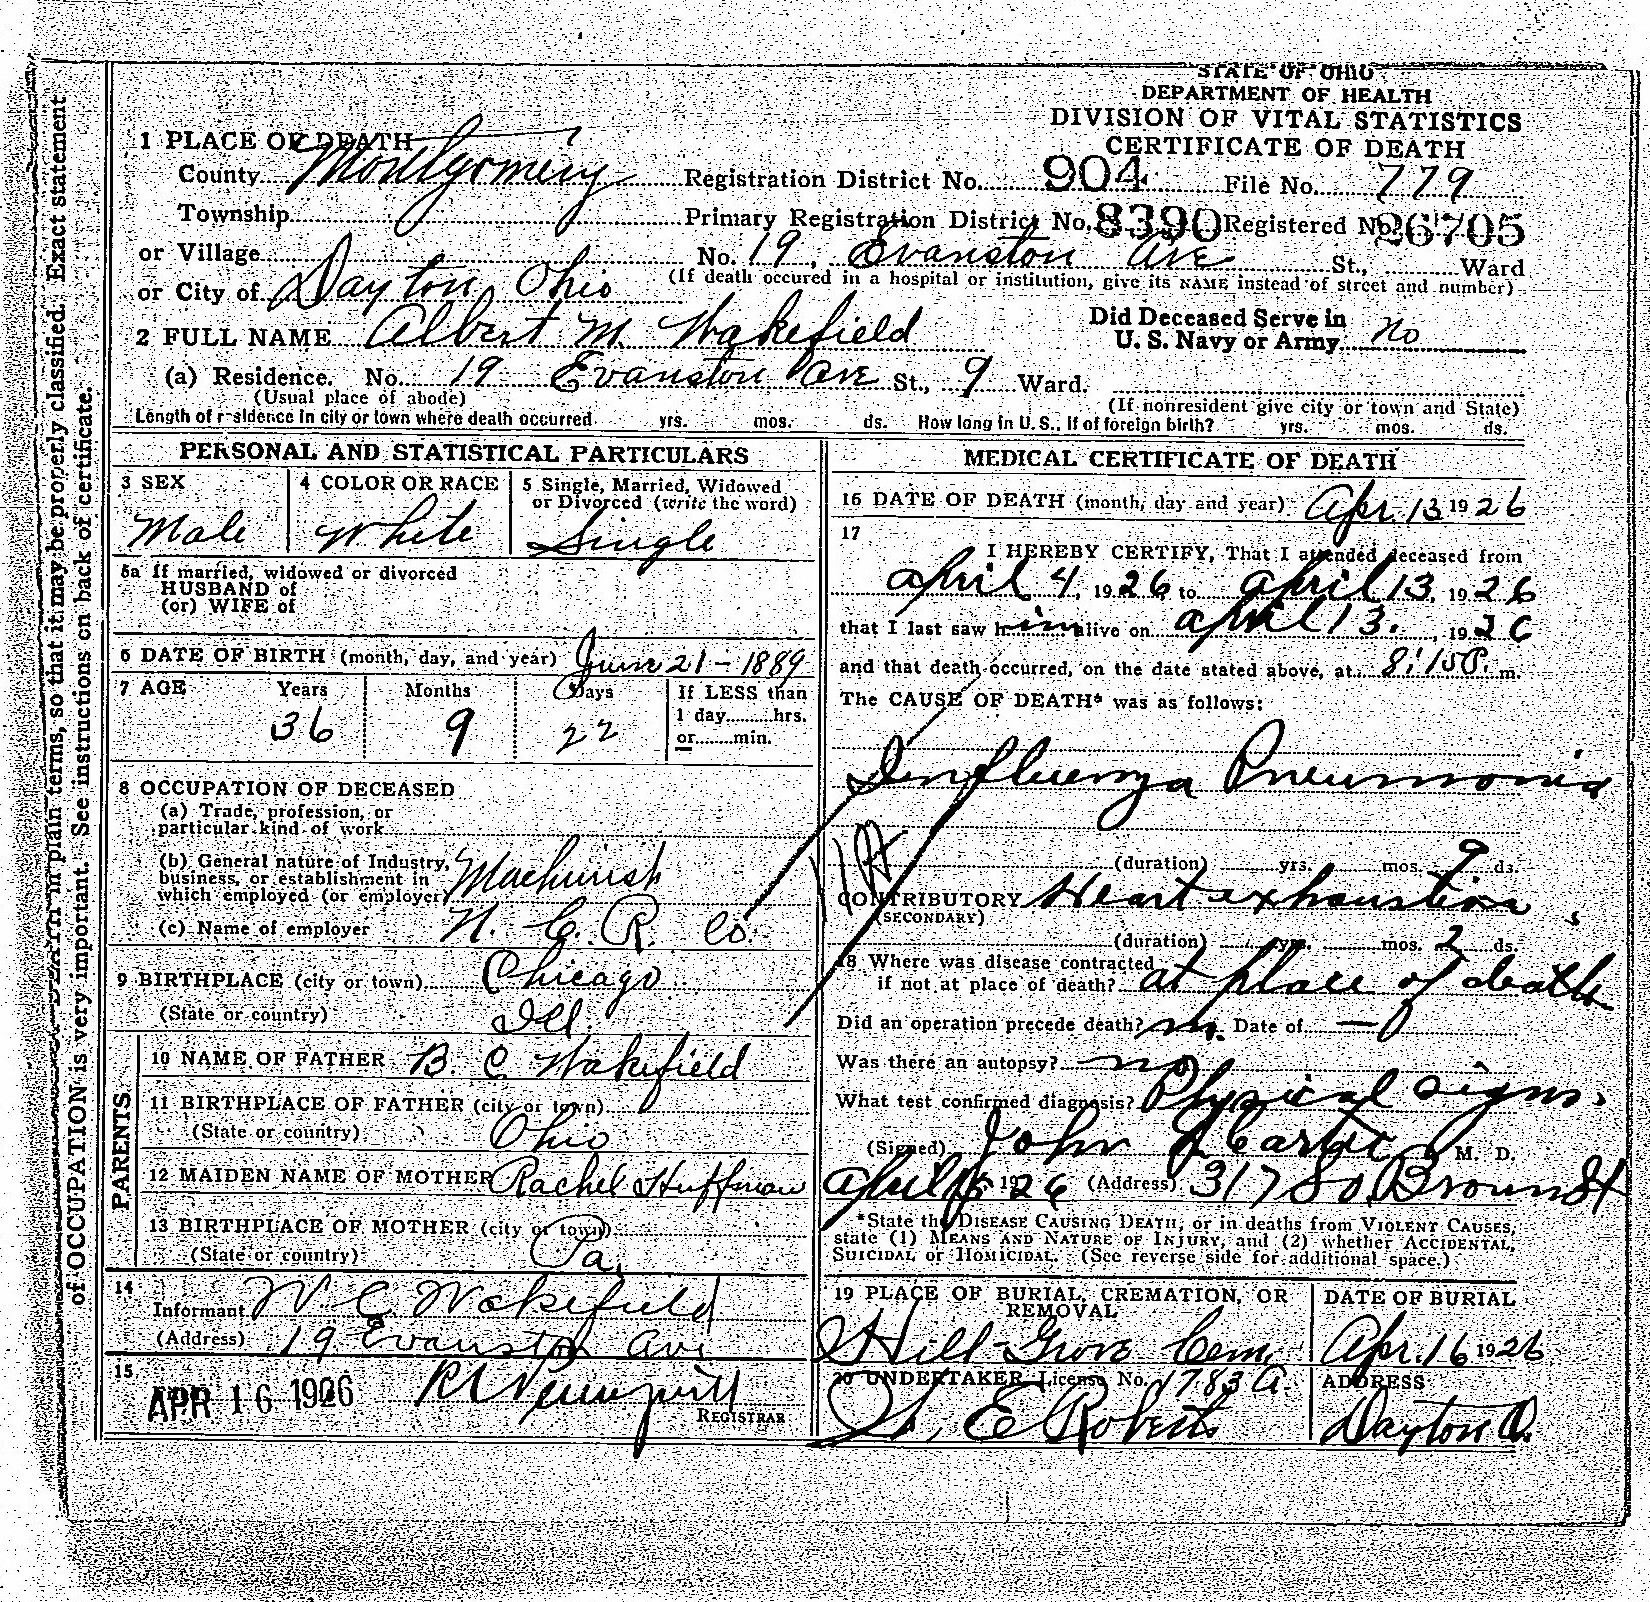 STATE OF OHIO
DEPARTMENT OF HEALTH
DIVISION OF VITAL STATISTICS
CERTIFICATE OF DEATH
1 PLACE OF DEATH
County Montgomery Registration District No. 904 File No. 779
Township Primary Registration District No. 8390 Registered No. 26705
or Village No. 19, Evanston Ave St., Ward
(If death occured in a hospital or institution, give its NAME instead of street and number)
or City of Dayton, Ohio
2 FULL NAME Albert M. Wakefield
Did Deceased Serve in
U. S. Navy or Army No
(a) Residence. No. 19 Evanston Ave St., 9 Ward.
(Usual place of abode) (If nonresident give city or town and State)
Length of r-sidence in city or town where death occurred yrs. mos. ds. How long in U. S., if of foreign birth? yrs. mos. ds.
PERSONAL AND STATISTICAL PARTICULARS
3 SEX 4 COLOR OR RACE 5 Single, Married, Widowed
or Divorced (write the word)
Male White Single
5a If married, widowed or divorced
HUSBAND of
(or) WIFE of
6 DATE OF BIRTH (month, day, and year) June 21-1889
7 AGE Years Months Days If LESS than
1 day hrs.
or min.
36 9 22
8 OCCUPATION OF DECEASED
(a) Trade, profession, or
particular kind of work
(b) General nature of Industry,
business, or establishment in
which employed (or employer) Machinist
(c) Name of employer N. C. R. Co.
9 BIRTHPLACE (city or town) Chicago
(State or country) Ill.
PARENTS
10 NAME OF FATHER B. C. Wakefield
11 BIRTHPLACE OF FATHER (city or town)
(State or country) Ohio
12 MAIDEN NAME OF MOTHER Rachel Huffman
13 BIRTHPLACE OF MOTHER (city or town)
(State or country) Pa.
14
Informant W. C. Wakefield
(Address) 19 Evanston Ave
15
APR 16 1926
REGISTRAR
MEDICAL CERTIFICATE OF DEATH
16 DATE OF DEATH (month, day and year) Apr. 13 1926
17
I HEREBY CERTIFY, That I attended deceased from
April 4, 1926 to April 13, 1926
that I last saw him alive on April 13, 1926
and that death occurred, on the date stated above, at 8:15 P. m.
The CAUSE OF DEATH* was as follows:
Influenza Pneumonia
(duration) yrs. mos. 9 ds.
CONTRIBUTORY Heart exhaustion
(SECONDARY)
(duration) yrs. mos. 2 ds.
18 Where was disease contracted
if not at place of death? at place of death
Did an operation precede death? no. Date of —
Was there an autopsy? no
What test confirmed diagnosis? Physical signs.
(Signed) John M. D.
April 1926 (Address) Brown St
*State the DISEASE CAUSING DEATH, or in deaths from VIOLENT CAUSES,
state (1) MEANS AND NATURE OF INJURY, and (2) whether ACCIDENTAL,
SUICIDAL or HOMICIDAL. (See reverse side for additional space.)
19 PLACE OF BURIAL, CREMATION, OR
REMOVAL
Hill-Grove Cem.
DATE OF BURIAL
Apr. 16 1926
20 UNDERTAKER License No. 1783 A.
E Roberts
ADDRESS
Dayton O.
in plain terms, so that it may be properly classified. Exact statement
of OCCUPATION is very important. See instructions on back of certificate.